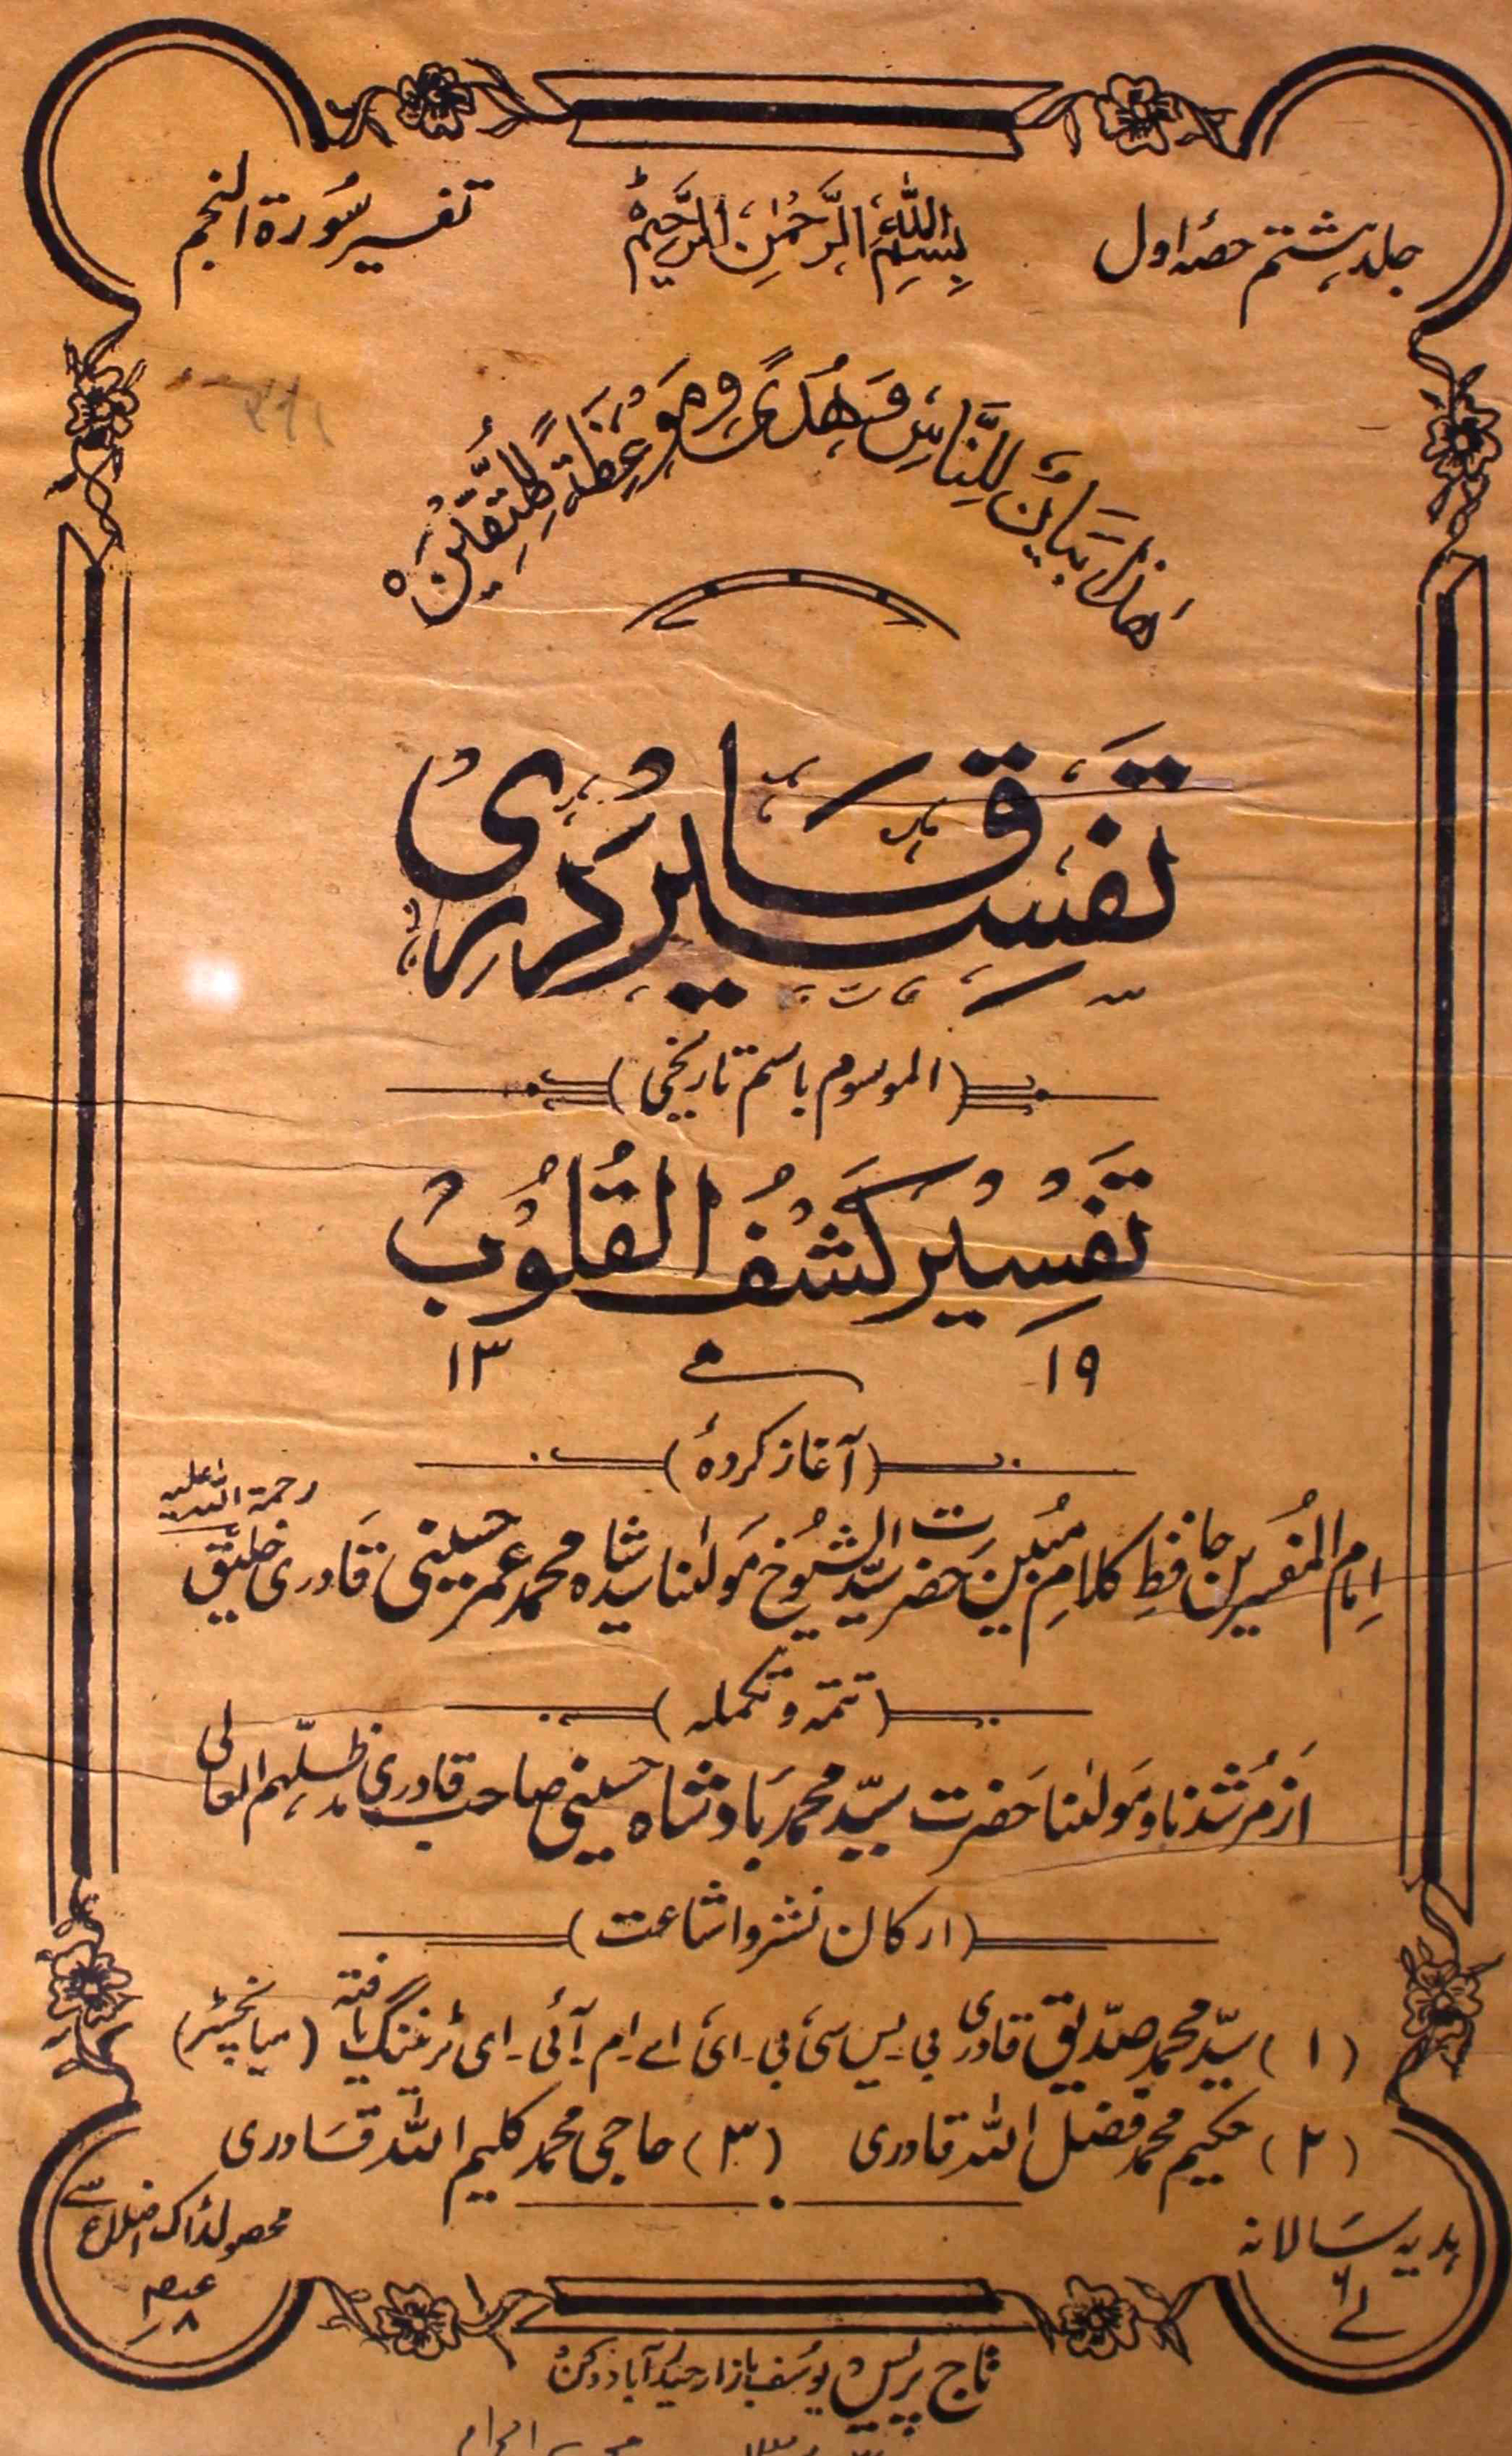 جلد ہشتم حصہ اول
بِسْمِ اللّٰهِ الرَّحْمٰنِ الرَّحِیْمِ
تفسیر سُورۃ النجم
هٰذَا بَيَانٌ لِلنَّاسِ وَهُدًى وَمَوْعِظَةٌ لِلْمُتَّقِيْنَ ہ
تفسیر قادری
(الموسوم باسم تاریخی)
تفسیر کشف القلوب
۱۹ ۱۳
(آغاز کردہٴ)
اِمام المفسرین حافظِ کلامِ مُبین حضرت سیّد الشیُوخ مَولٰنا سید شاہ محمد عمر حسینی قادری خلیق رحمۃ اللہ علیہ
(تتمّہ و تکملہ)
از مُرشدنا و مَولٰنا حضرت سیّد محمد بادشاہ حسینی صاحب قادری مدظلہم العالی
(ارکان نشر و اشاعت)
(۱) سیّد محمد صدّیق قادری بی۔یس سی، بی۔ای، اے۔ام۔آئی۔ای ٹرننگ یافتہ (میانچسٹر)
(۲) حکیم محمد فضل اللہ قادری (۳) حاجی محمد کلیم اللہ قادری
ہدیہ سالانہ
محصولڈاک اضلاع سے
تاج پریس یوسف بازار حیدرآباد دکن